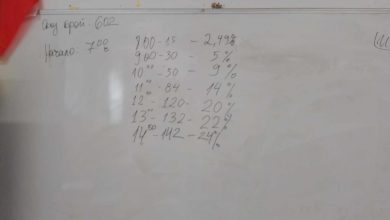 Общ брой - 602
Начало: 7⁰⁰ ч
8⁰⁰ - 15 - 2,49%
9⁰⁰ - 30 - 5%
10⁰⁰ - 50 - 9%
11⁰⁰ - 84 - 14%
12⁰⁰ - 120 - 20%
13⁰⁰ - 132 - 22%
14⁰⁰ - 142 - 24%